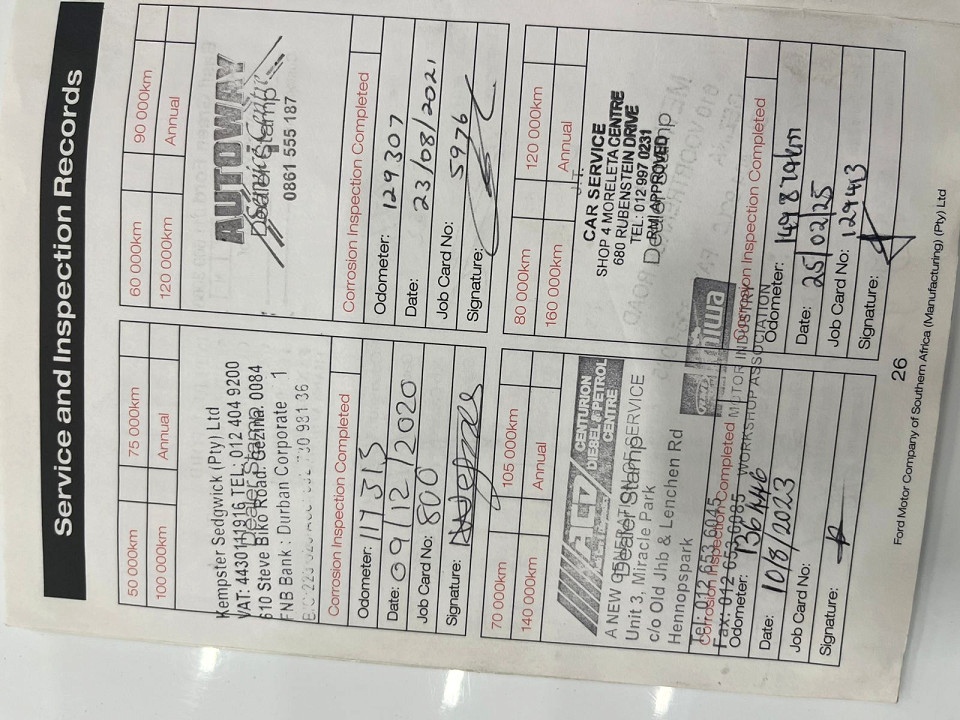 Service and Inspection Records
50 000km
75 000km
100 000km
Annual
Kempster Sedgwick (Pty) Ltd
VAT: 4430114916 TEL: 012 404 9200
610 Steve Biko Road. Gezina. 0084
FNB Bank : Durban Corporate 1
Dealer Stamp
Corrosion Inspection Completed
Odometer: 117313
Date: 09/12/2020
Job Card No: 800
Signature:
60 000km
90 000km
120 000km
Annual
AUTOWAY
Dealer Stamp
0861 555 187
Corrosion Inspection Completed
Odometer: 129307
Date: 23/08/2021
Job Card No: 5976
Signature:
70 000km
105 000km
140 000km
Annual
CENTURION
DIESEL & PETROL
CENTRE
Dealer Stamp
Unit 3, Miracle Park
c/o Old Jhb & Lenchen Rd
Hennopspark
Tel: 012 653 6045
Fax: 012 653 6085
Corrosion Inspection Completed
MOTOR INDUSTRY
WORKSHOP ASSOCIATION
Odometer: 136446
Date: 10/8/2023
Job Card No:
Signature:
80 000km
120 000km
160 000km
Annual
CAR SERVICE
SHOP 4 MORELETA CENTRE
680 RUBENSTEIN DRIVE
TEL: 012 997 0231
RMI APPROVED
Dealer Stamp
Corrosion Inspection Completed
Odometer: 149874km
Date: 25/02/25
Job Card No: 129443
Signature:
26
Ford Motor Company of Southern Africa (Manufacturing) (Pty) Ltd